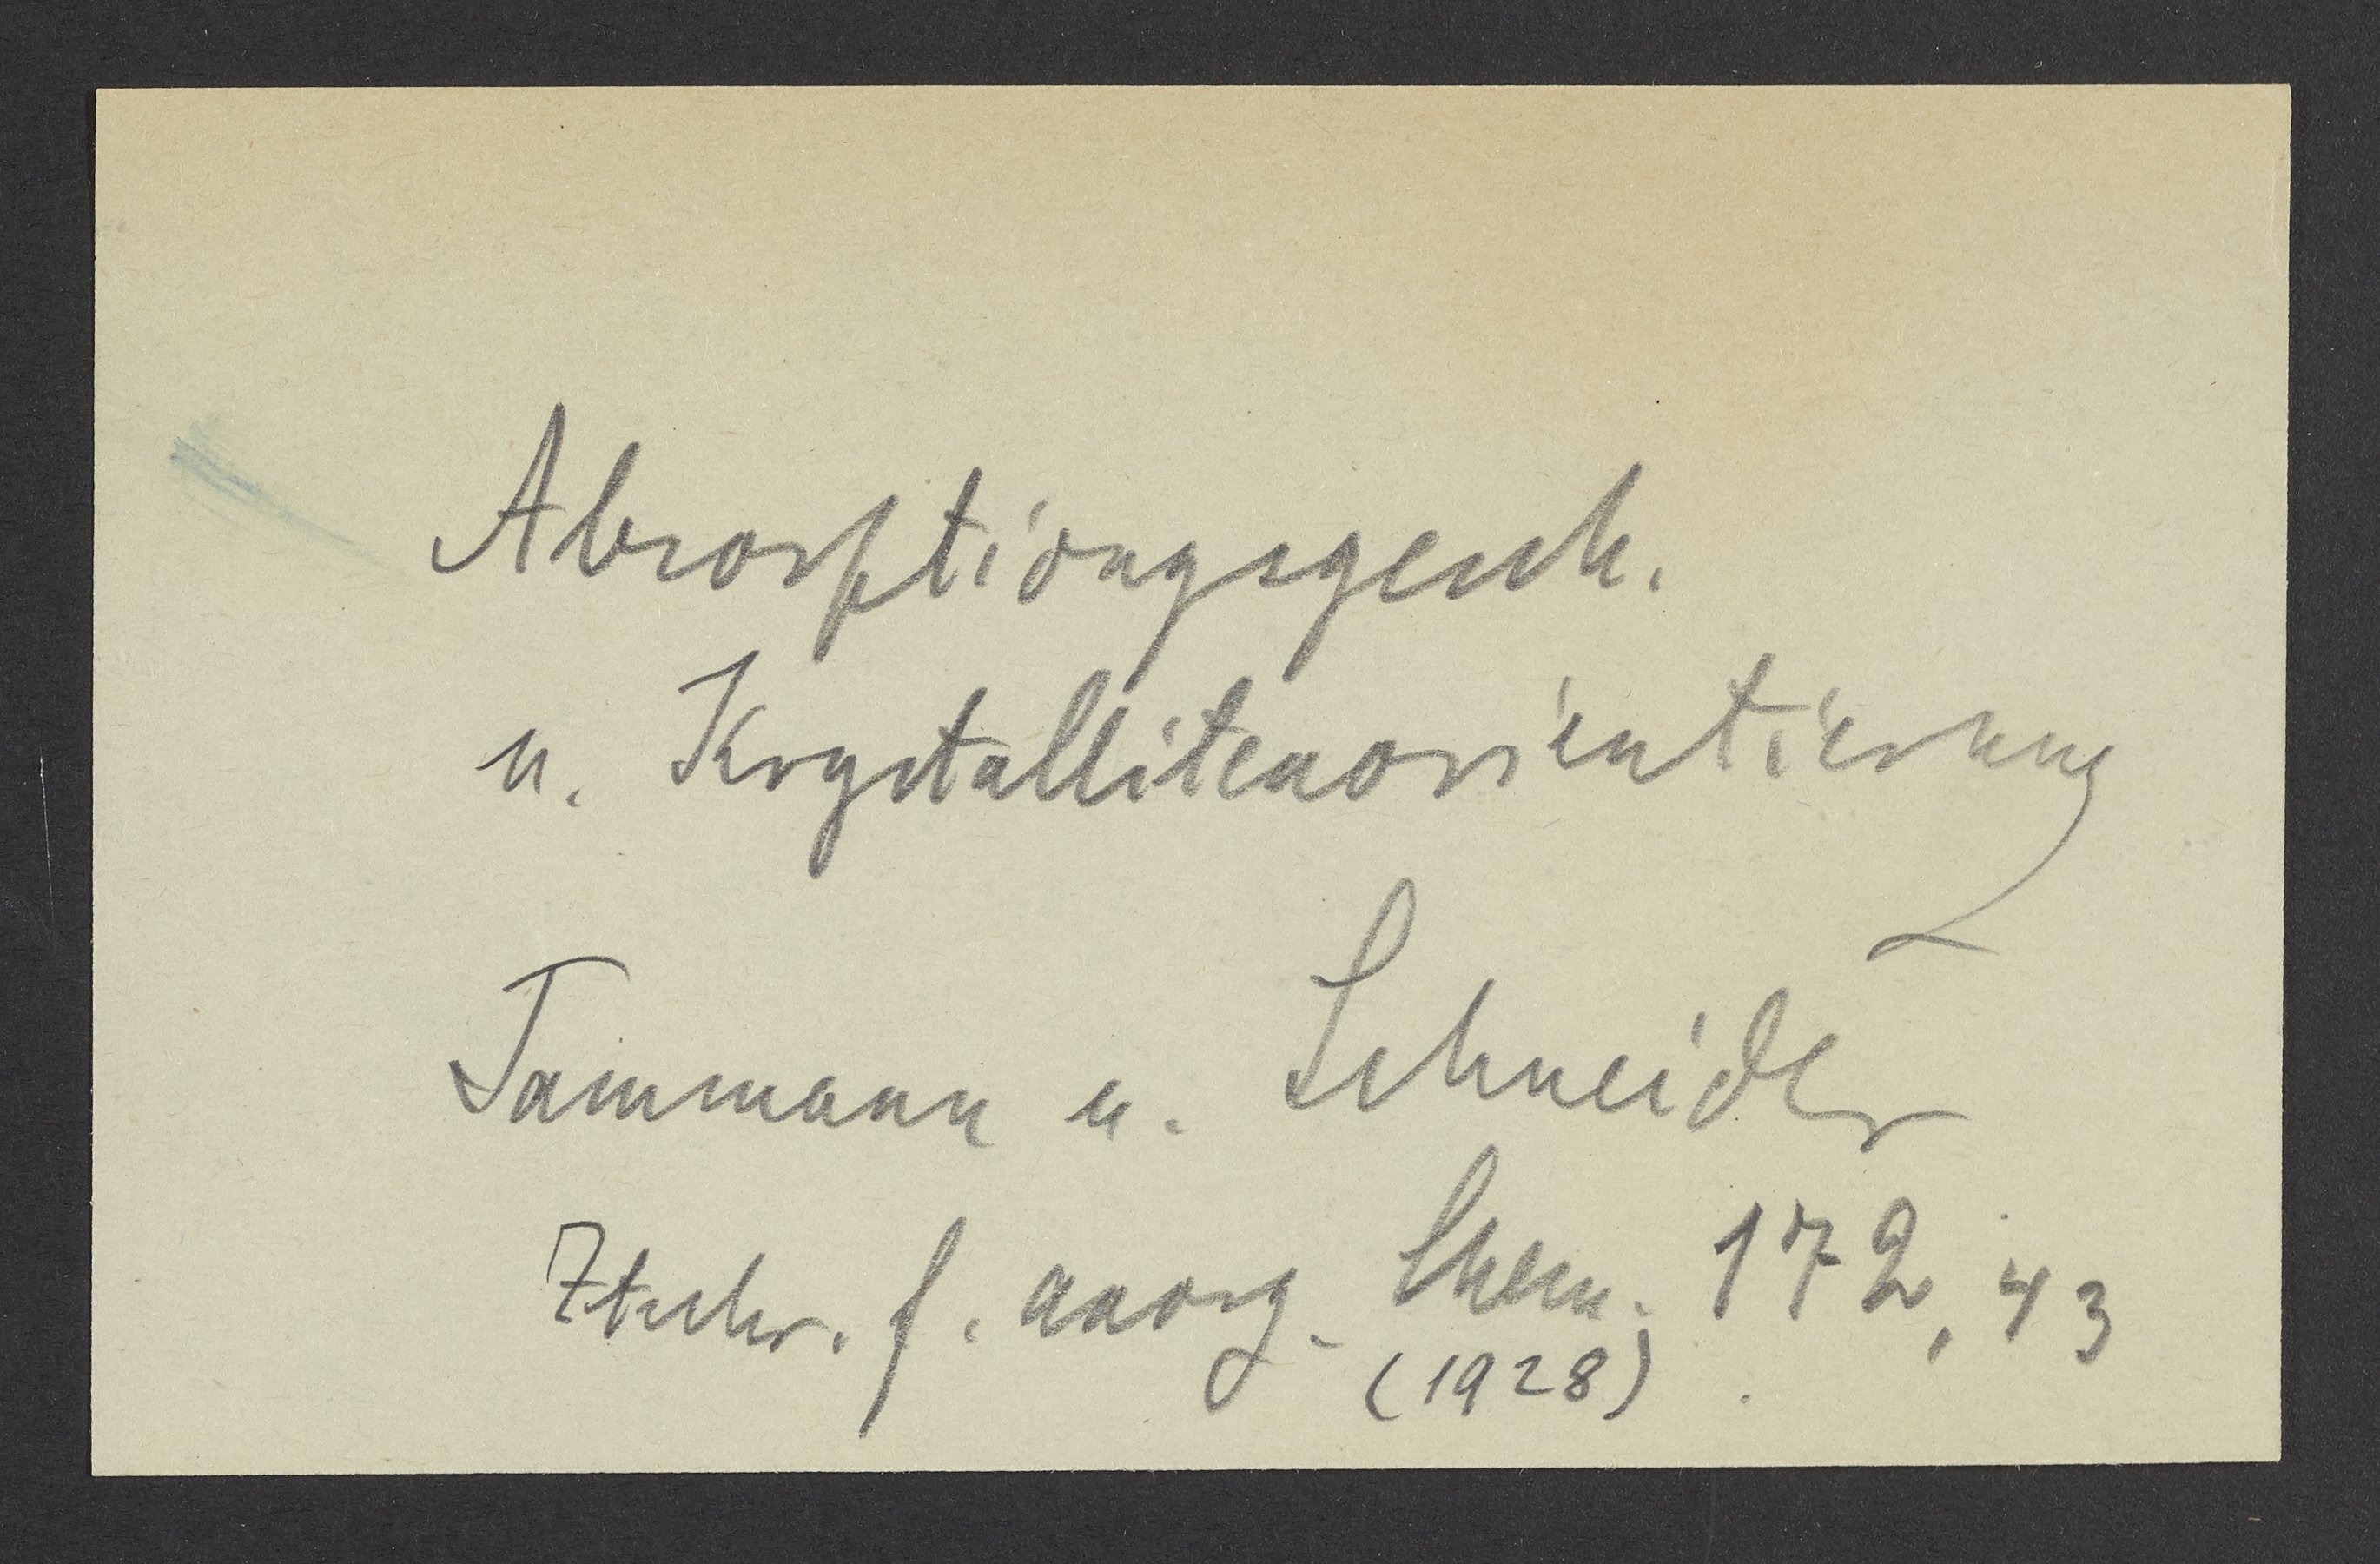 Absorptionsgesch.
u. Krystallitenorientierung
Tammann u. Schneider
Ztschr. f. anorg. Chem. 172, 43
(1928).